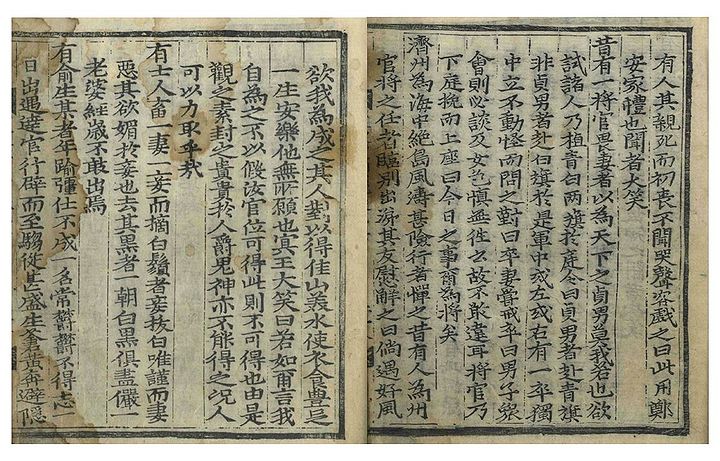 有人其親死而初喪不聞哭聲客戲之曰此用鄭
安家禮也聞者大笑
昔有一將官畏妻者以為天下之貞男莫我若也欲
試諸人乃植青白兩旗於庭令曰貞男者赴青旗
非貞男者赴白旗於是軍中或左或右有一卒獨
中立不動怪而問之對曰卒妻嘗戒卒曰男子聚
會則必談及女色慎無往云故不敢違耳將官乃
下庭挽而上座曰今日之事爾為將矣
濟州為海中絶島風濤甚險行者憚之昔有人為州
官將之任者臨別出涕其友慰解之曰倘遇好風
欲我為成之其人對以得佳山美水使衣食豊足
一生安樂他無所願也冥王大笑曰若如爾言我
自為之不以假汝官位可得此則不可得也由是
觀之素封之貴貴於人爵鬼神亦不能得之况人
可以力取乎哉
有士人畜一妻一妾而摘白鬚者妾拔白唯謹而妻
惡其欲媚於妾也去其黑者一朝白黑俱盡儼一
老婆經歲不敢出焉
有俞生某者年踰彊仕不成一名常鬱鬱不得志一
日出遇達官行辟而至騶從甚盛生避隱